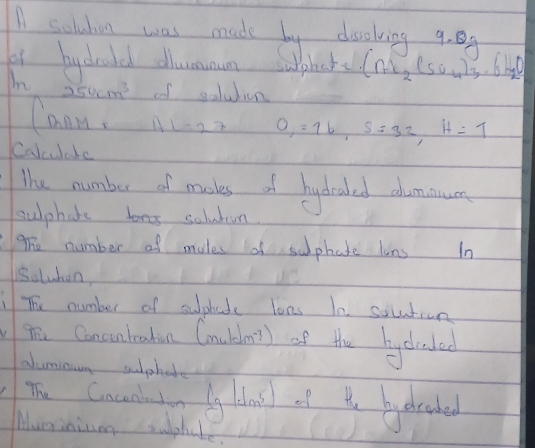 A solution was made by dissolving 9.0g
of hydrated aluminum sulphate (Al2(SO4)3.6H2O
In 250cm3 of solution
(RAM: Al=27 O=16, S=32, H=1
Calculate
The number of moles of hydrated aluminium
sulphate solution.
The number of moles of sulphate Ions In
Solution.
i The number of sulphate Ions In solution
v The Concentration (moldm-3) of the hydrated
aluminium sulphate
The Concentration (g/dm3) of the hydrated
Aluminium sulphate.